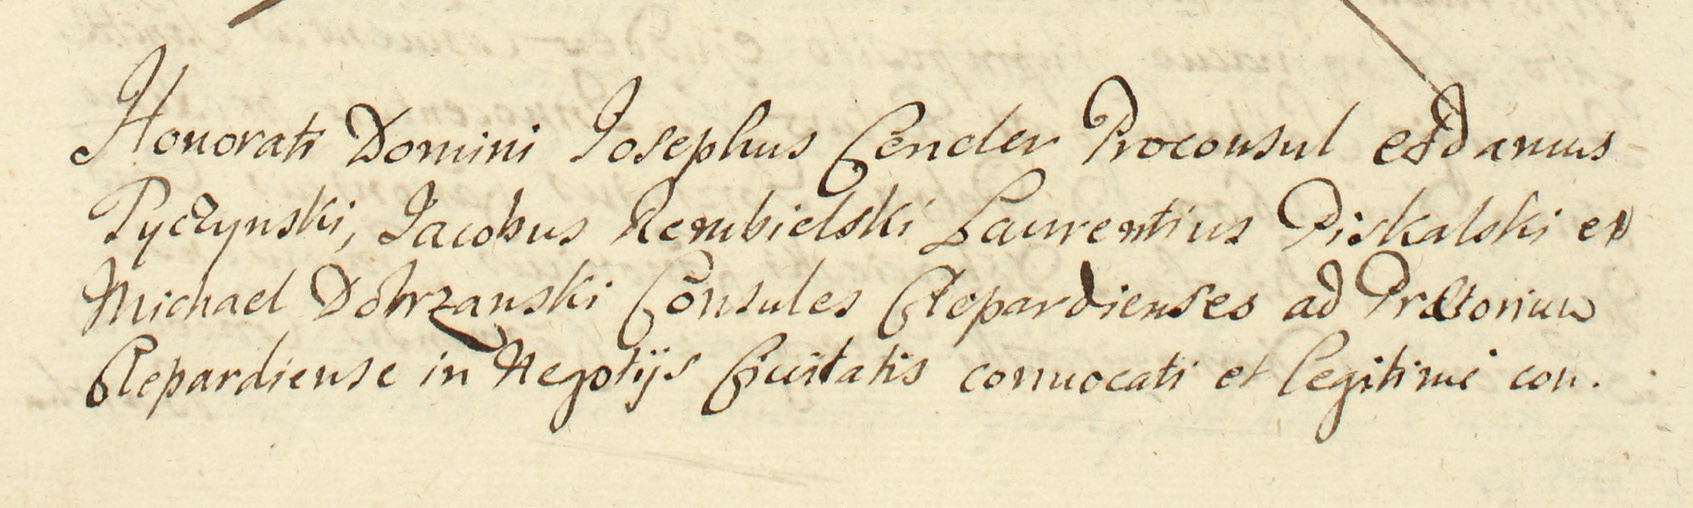 Honorati Domini Josephus Cender Proconsul et Damus
Pyczynski, Jacobus Rembielski Laurentius Piskalski et
Michael Dobrzanski Consules Clepardienses ad Prætorium
Clepardiense in Negotijs Ciuitatis conuocati et legitime con.